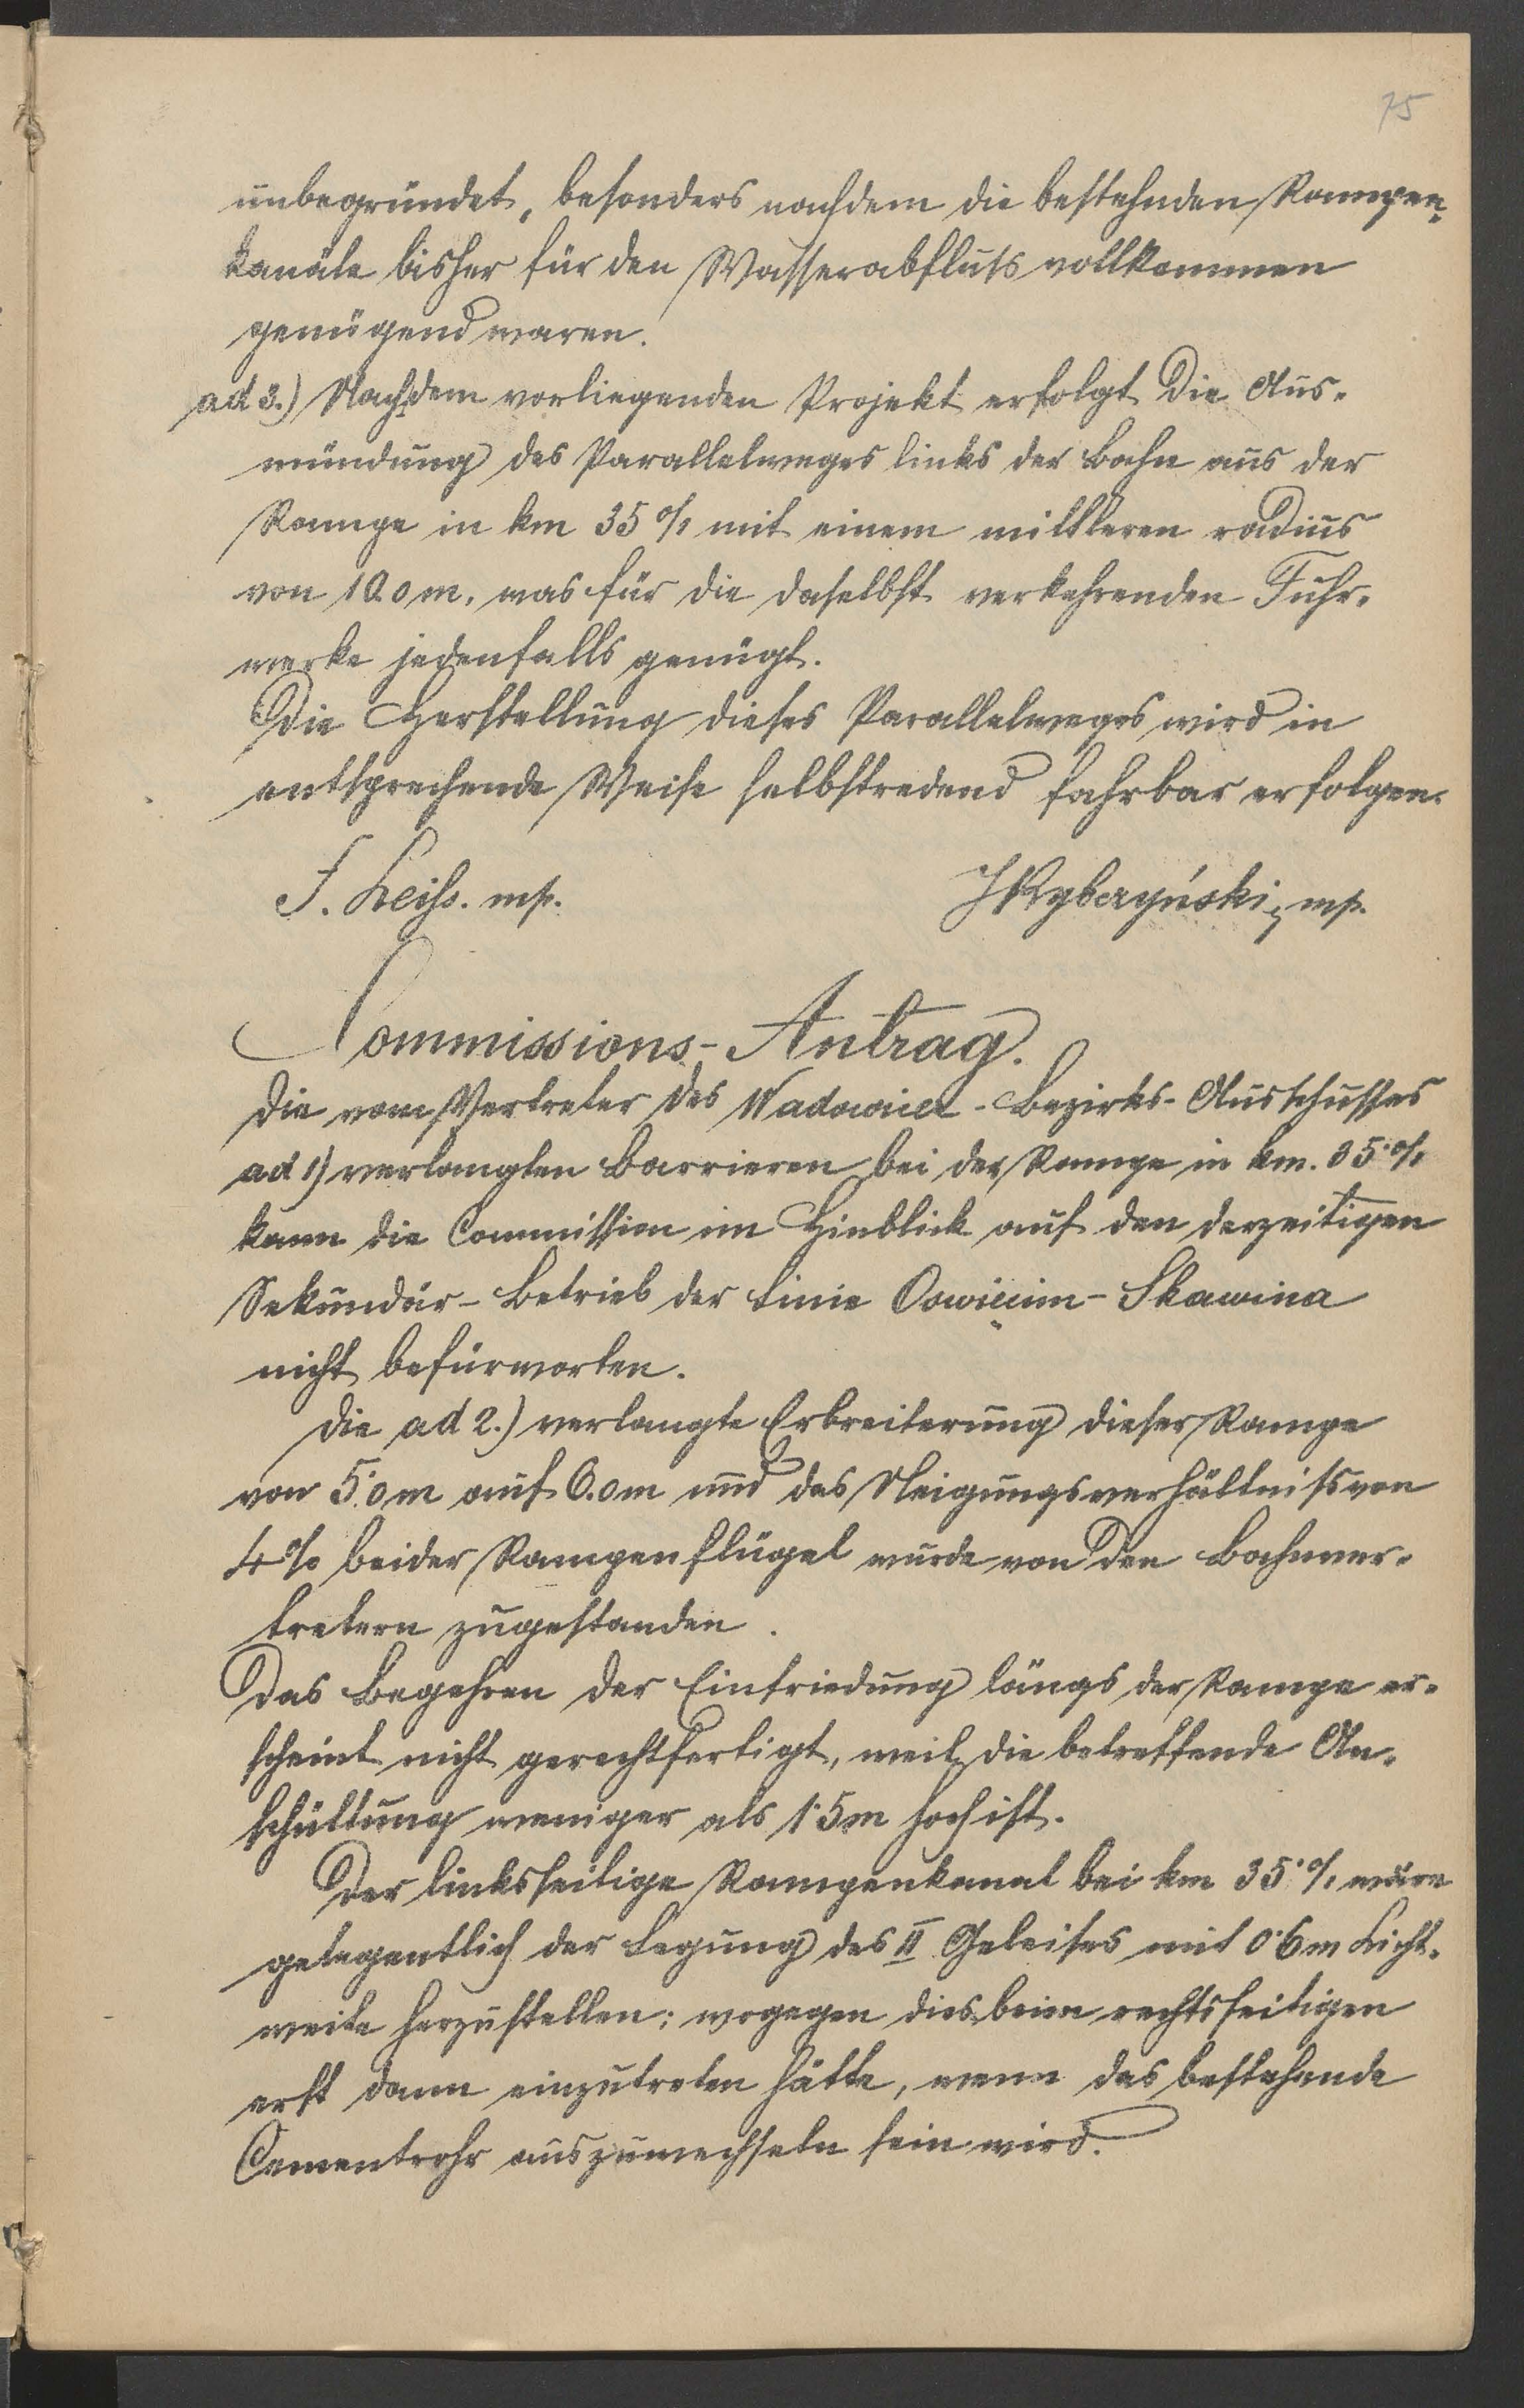 75
unbegründet, besonders nachdem die bestehnden Rampen-
kanäle bisher für den Wasserabfluss vollkommen
genügend waren.
ad 3.) Nach dem vorliegenden Projekt erfolgt die Aus-
mündung des Parallelweges links der Bahn aus der
Rampe in km 35 0/1 mit einem mittleren radius
von 10.0 m, was für die daselbst verkehrenden Fuhr-
werke jedenfalls genügt.
Die Herstellung dieses Parallelweges wird in
entsprechende Weise selbstredend fahrbar erfolgen.
F. Leiss. mp. J Rybczyński, mp.
Commissions-Antrag.
Die vom Vertreter des Wadowicer-Bezirks-Ausschusses
ad 1) verlangten Barrieren bei der Rampe in km. 35·0/1
kann die Commission im Hinblick auf den derzeitigen
Sekundär-Betrieb der Linie Oswięcim-Skawina
nicht befürworten.
Die ad 2.) verlangte Erbreiterung dieser Rampe
von 5·0m auf 6.0m und das Neigungsverhältniss von
4% beider Rampenflügel wurde von den Bahnver-
tretern zugestanden.
Das Begehren der Einfriedung längs der Rampe er-
scheint nicht gerechtfertigt, weil die betreffende An-
schüttung weniger als 1·5m hoch ist.
Der linksseitige Rampenkanal bei km 35·0/1 wäre
gelegentlich der Legung des II Geleises mit 0·6m Licht-
weite herzustellen; wogegen dies beim rechtsseitigen
erst dann einzutreten hätte, wenn das bestehende
Cementrohr auszuwechseln sein wird.